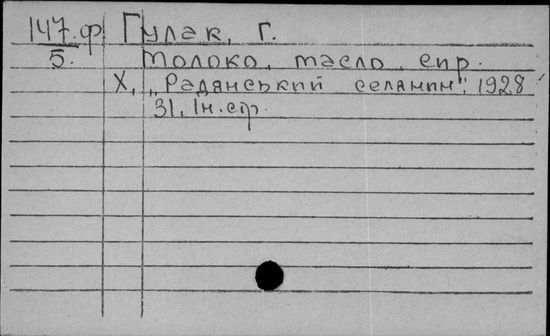 147.ф Гулак, Г.
5. Молоко, масло, сир.
Х, „Радянський селянин", 1928
31, Ін. стр.